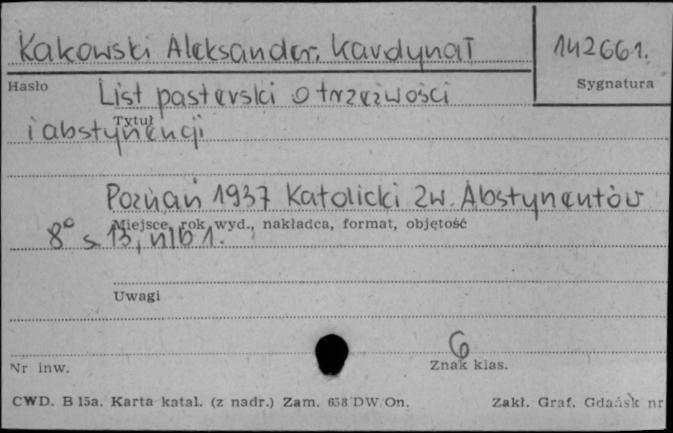 Kakowski Aleksander, kardynał
142661.
Hasło
Sygnatura
List pasterski o trzeźwości
Tytuł
i abstynencji
Poznań 1937 Katolicki Zw. Abstynentów
Miejsce, rok wyd., nakładca, format, objętość
8° s. 13, nlb 1.
Uwagi
6
Nr inw.
Znak klas.
CWD. B 15a. Karta katal. (z nadr.) Zam. 658 DW/On.
Zakł. Graf. Gdańsk nr